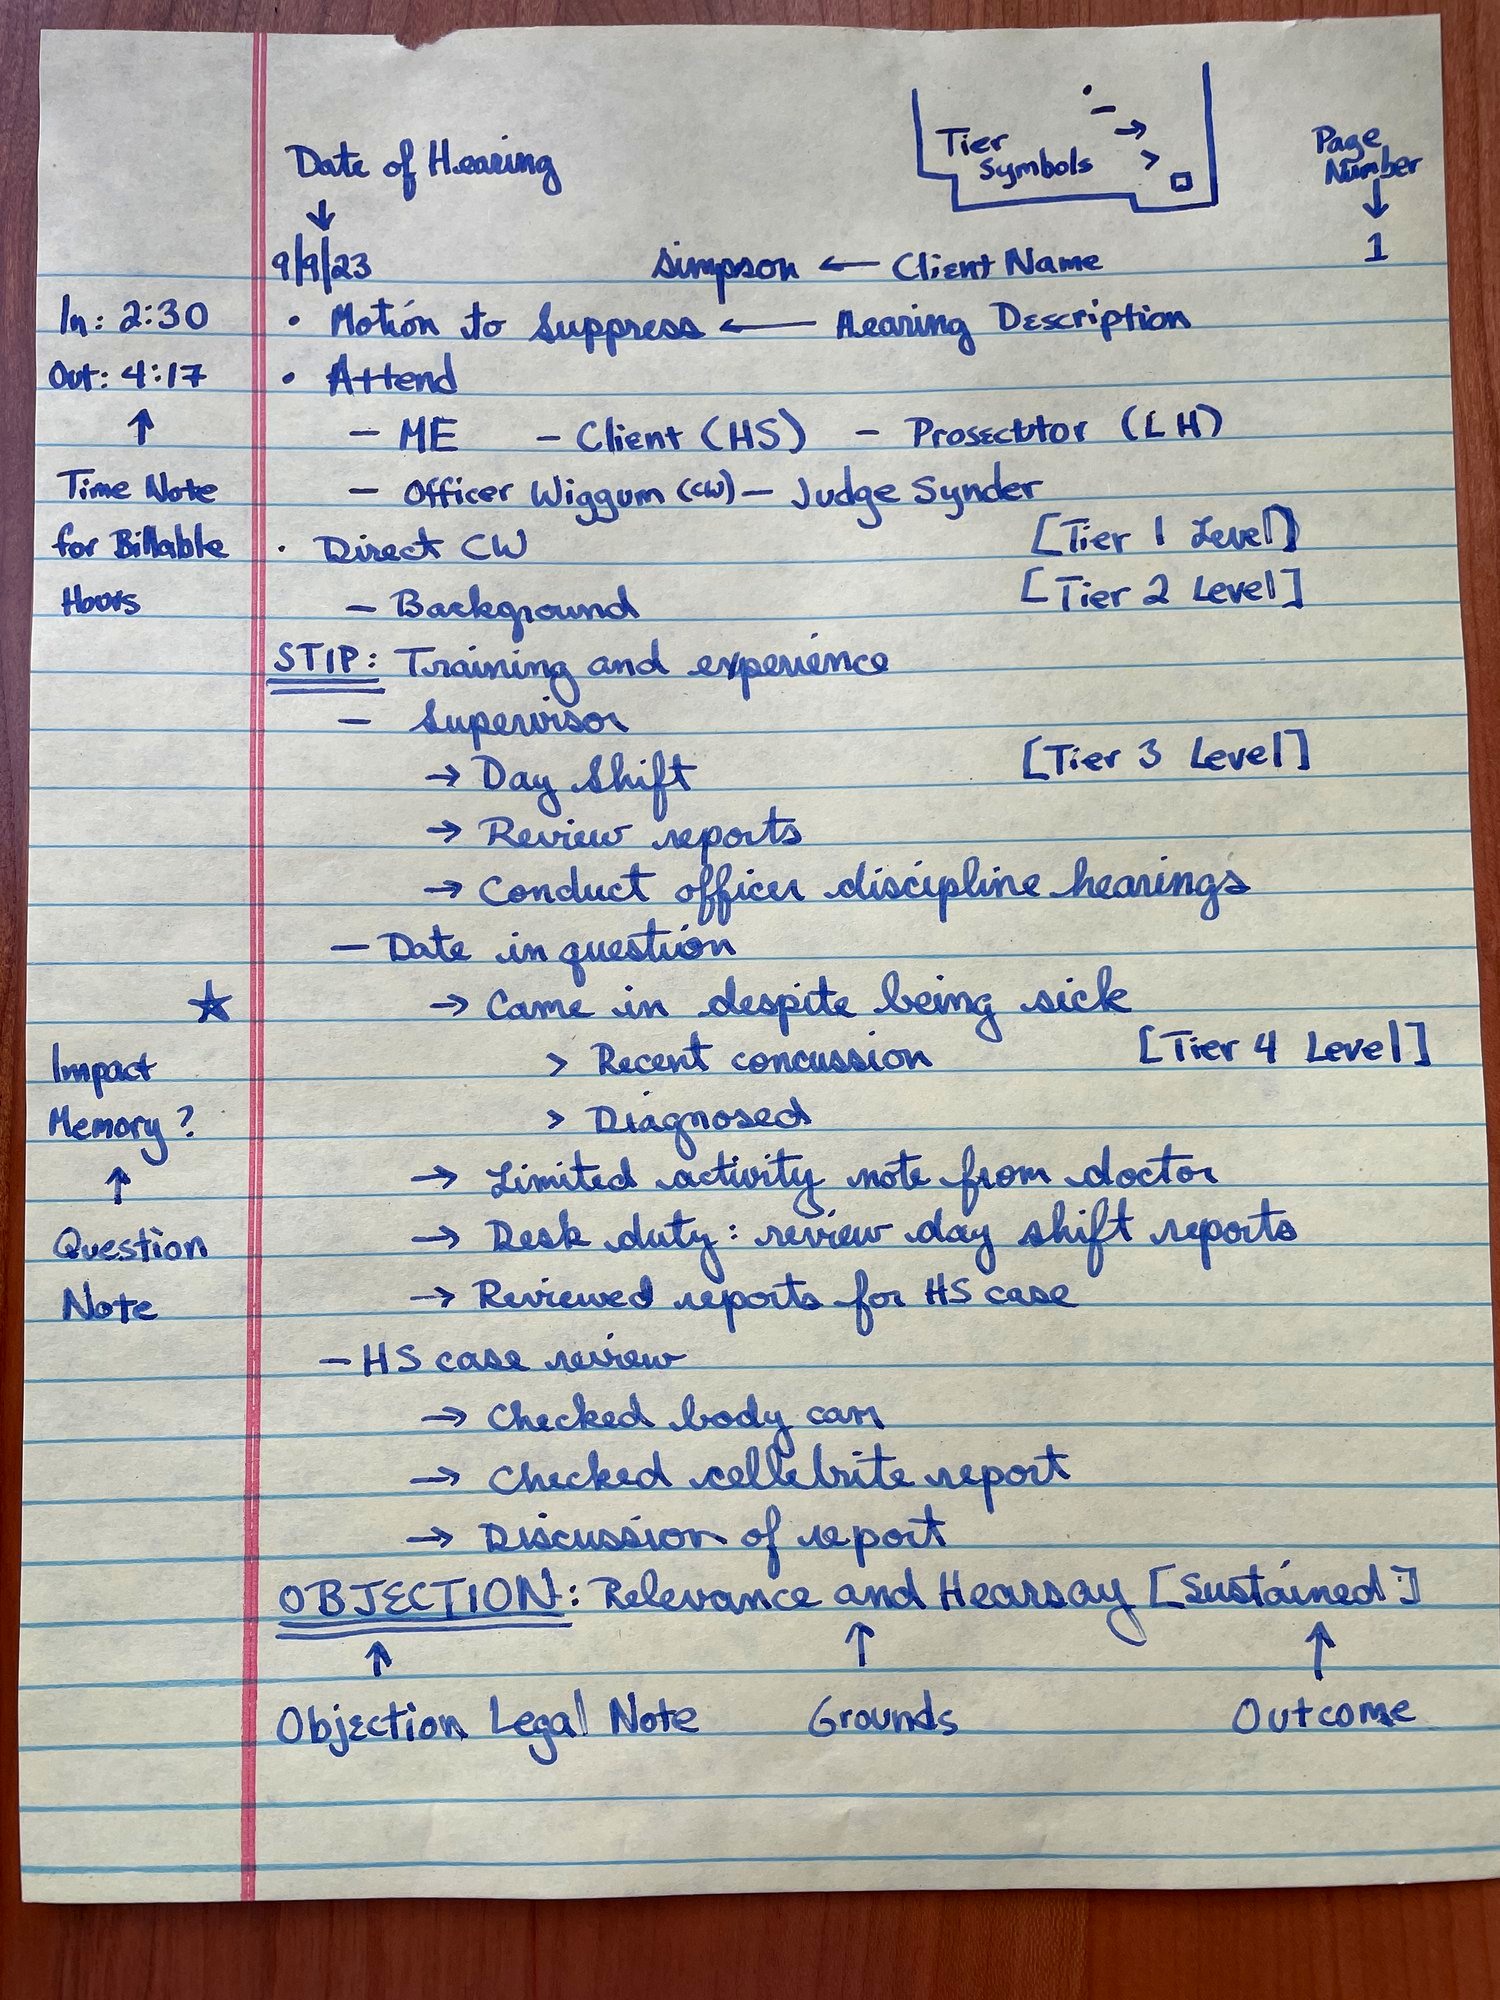 Date of Hearing
Tier Symbols
• – → > □
Page Number
↓ ↓
9/9/23 Simpson ← Client Name 1
In: 2:30 • Motion to Suppress ← Hearing Description
Out: 4:17 • Attend
↑ – ME – Client (HS) – Prosecutor (LH)
Time Note – Officer Wiggum (CW) – Judge Synder
for Billable • Direct CW [Tier 1 Level]
Hours – Background [Tier 2 Level]
STIP: Training and experience
– Supervisor
→ Day Shift [Tier 3 Level]
→ Review reports
→ Conduct officer discipline hearings
– Date in question
★ → Came in despite being sick
Impact > Recent concussion [Tier 4 Level]
Memory? > Diagnosed
↑ → Limited activity note from doctor
Question → Desk duty: review day shift reports
Note → Reviewed reports for HS case
– HS case review
→ Checked body cam
→ Checked cellebrite report
→ Discussion of report
OBJECTION: Relevance and Hearsay [Sustained]
↑ ↑ ↑
Objection Legal Note Grounds Outcome